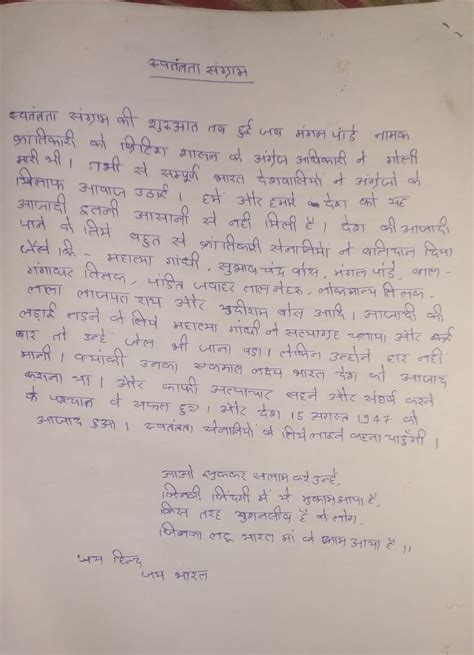 स्वतंत्रता संग्राम
स्वतंत्रता संग्राम की शुरुआत तब हुई जब मंगल पांडे नामक
क्रांतिकारी को ब्रिटिश शासन के अंग्रेज अधिकारी ने गोली
मारी थी। तभी से सम्पूर्ण भारत देशवासियों ने अंग्रेजों के
खिलाफ आवाज उठाई। हमें और हमारे देश को यह
आजादी इतनी आसानी से नहीं मिली है। देश की आजादी
पाने के लिये बहुत से क्रांतिकारी सेनानियों ने बलिदान दिया
जैसे कि - महात्मा गांधी, सुभाष चंद्र बोस, मंगल पांडे, बाल-
गंगाधर तिलक, पंडित जवाहर लाल नेहरु, लोकमान्य तिलक,
लाला लाजपत राय और खुदीराम बोस आदि। आजादी की
लड़ाई लड़ने के लिये महात्मा गांधी ने सत्याग्रह चलाया और कई
बार तो उन्हे जेल भी जाना पड़ा। लेकिन उन्होने हार नहीं
मानी। क्योंकी उनका एकमात्र लक्ष्य भारत देश को आजाद
कराना था। और काफी अत्याचार सहने और संघर्ष करने
के पश्चात वे सफल हुए। और देश 15 अगस्त 1947 को
आजाद हुआ। स्वतंत्रता सेनानियों के लिये कहना चाहूँगी।
आओ झुककर सलाम करे उन्हे,
जिनकी जिंदगी में ये मुकाम आया है,
किस तरह खुशनसीब है वे लोग,
जिनका लहू भारत मां के काम आया है।।
जय हिन्द
जय भारत